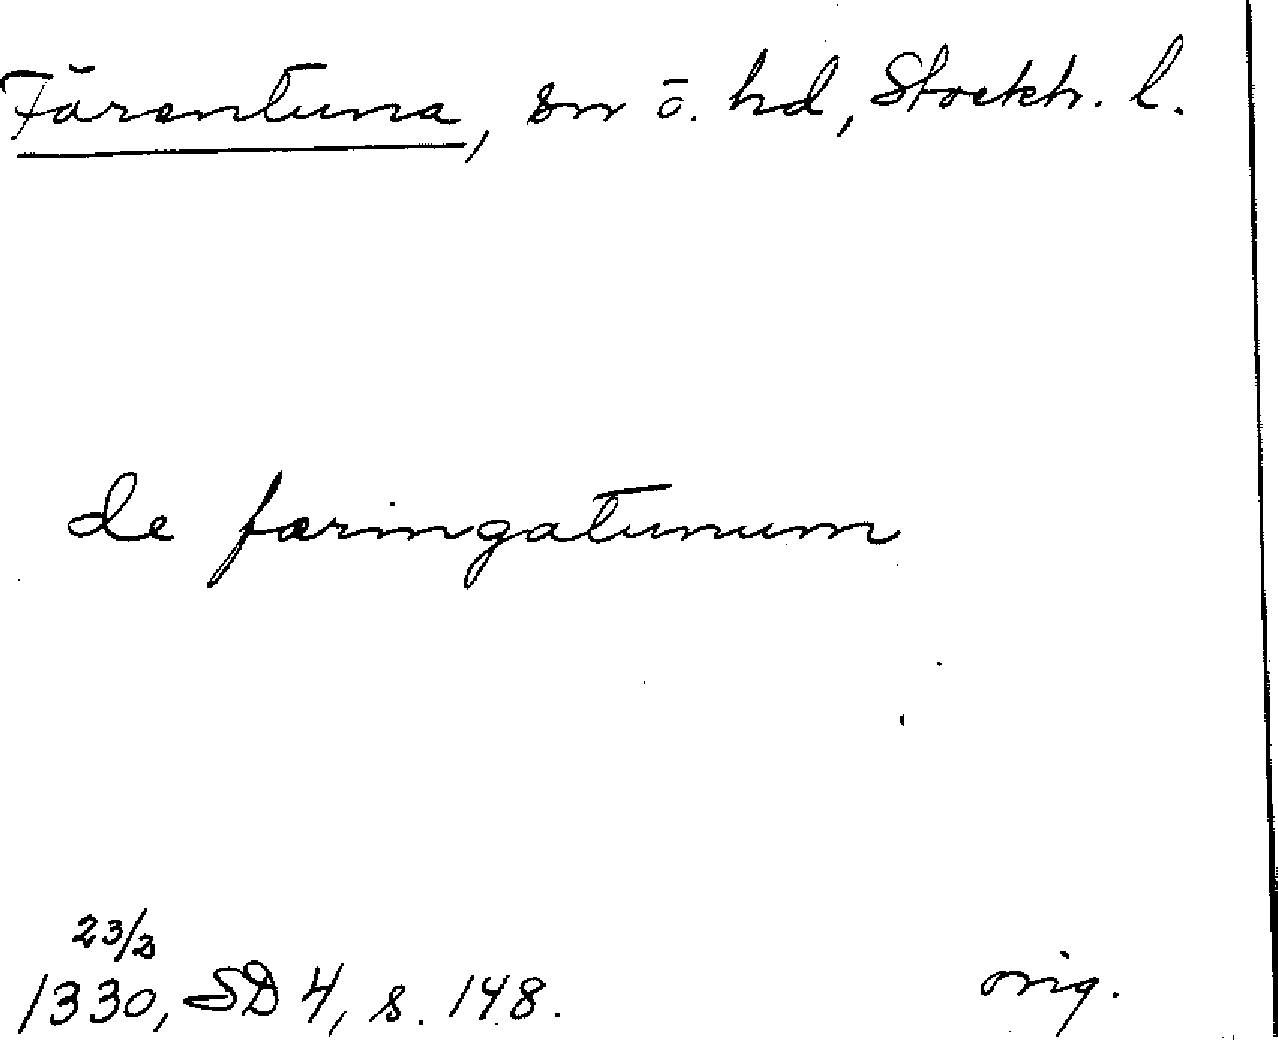 Färentuna, sn ö. hd, Stockh. l.
de færingatunum
23/2
1330, SD 4, s. 148.
orig.